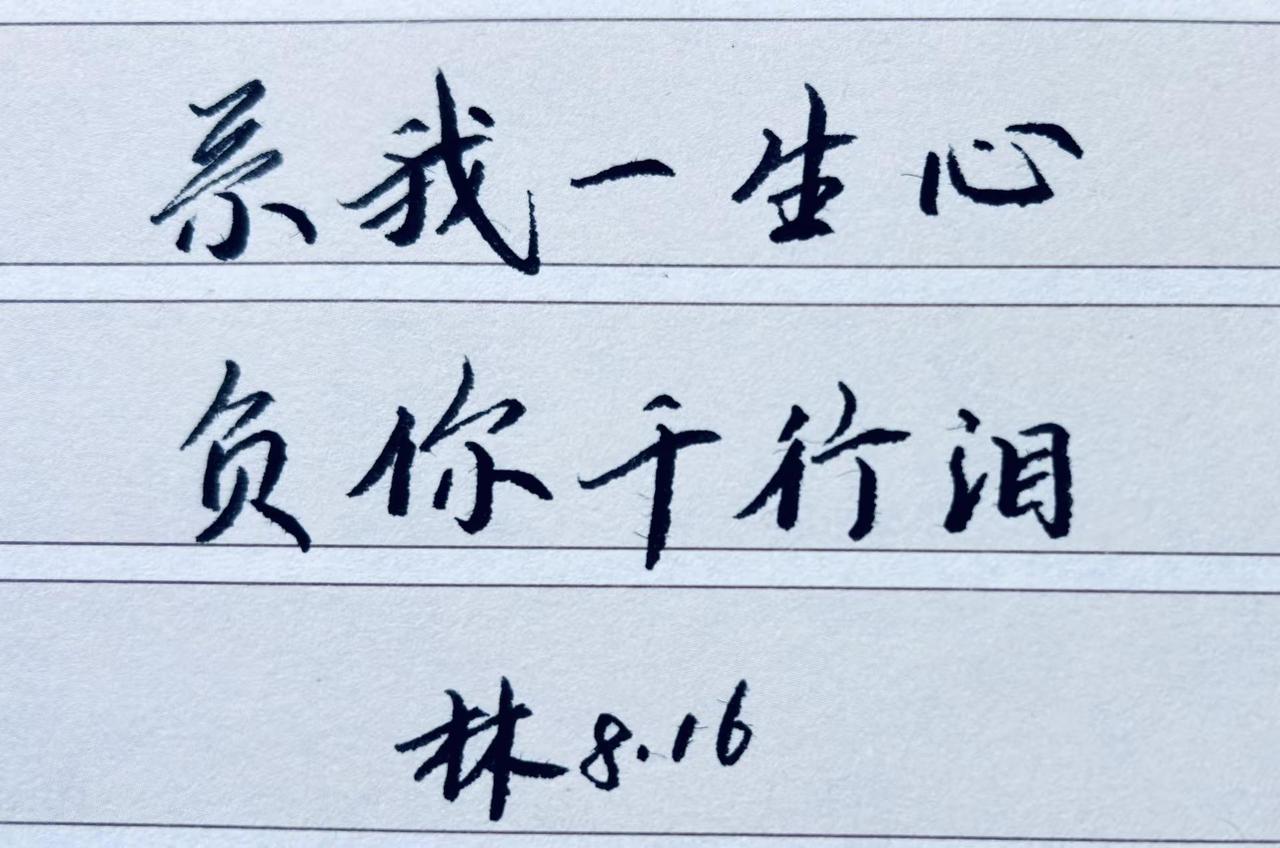 系我一生心
负你千行泪
林8.16